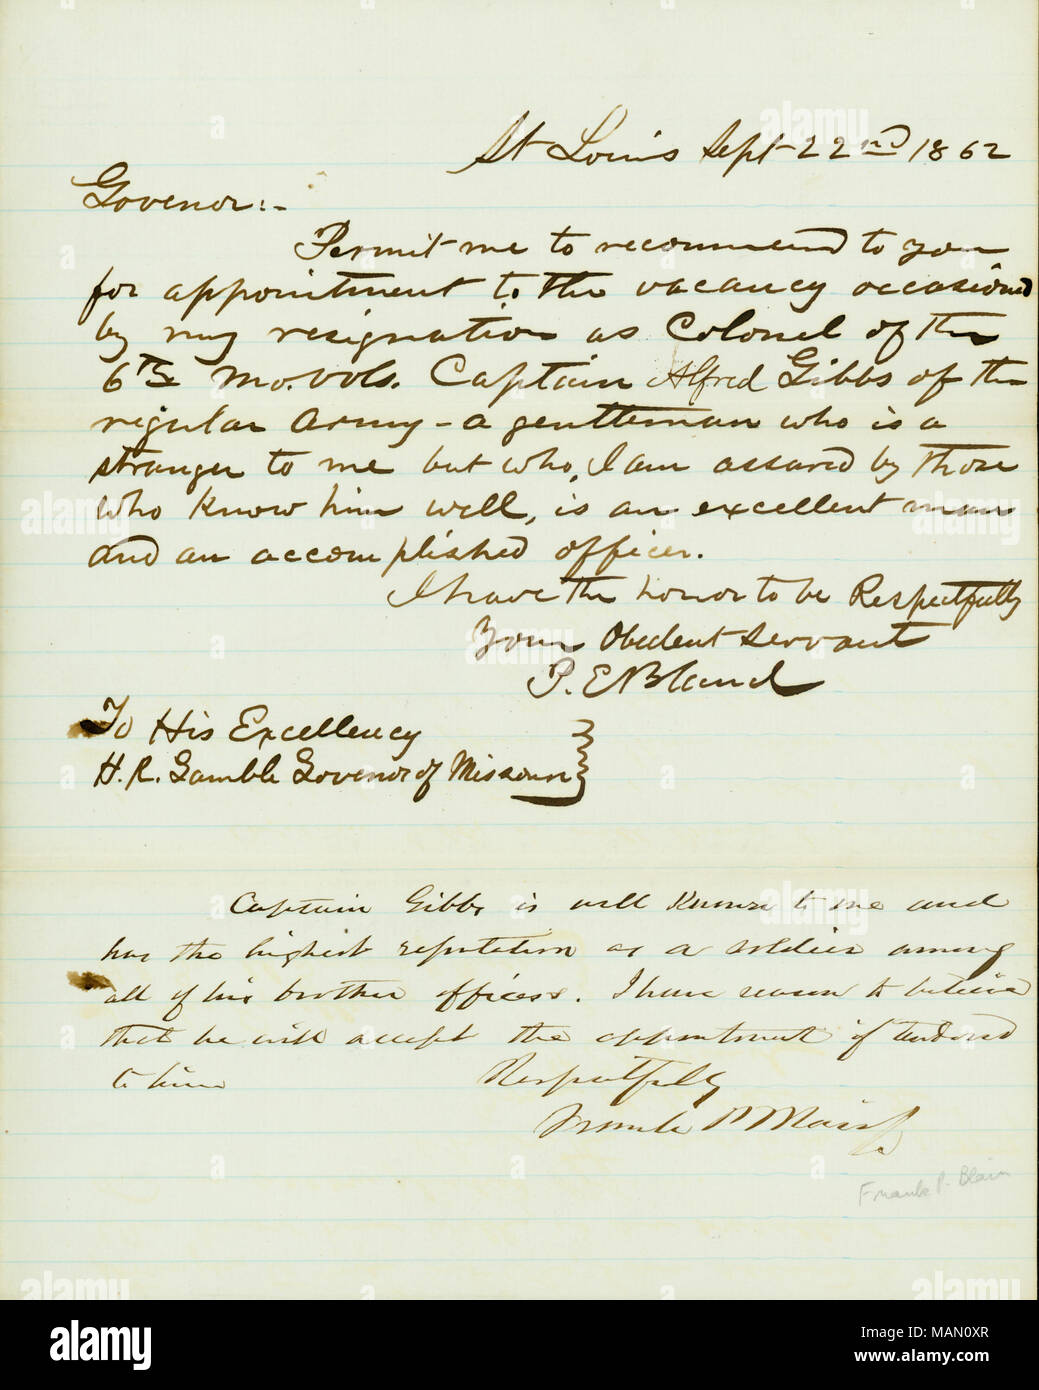 St Louis Sept 22nd 1862
Govenor:-
Permit me to recommend to you
for appointment to the vacancy occasioned
by my resignation as Colonel of the
6th Mo. Vols. Captain Alfred Gibbs of the
regular Army - a gentleman who is a
stranger to me but who, I am assured by those
who know him well, is an excellent man
and an accomplished officer.
I have the honor to be Respectfully
Your Obedent Servant
P. E. Bland
To His Excellency
H. R. Gamble Govenor of Missouri
Captain Gibbs is well known to me and
has the highest reputation as a soldier among
all of his brother officers. I have reason to believe
that he will accept the appointment if tendered
to him
Respectfully
Frank P Blair Jr
Frank P. Blair
alamy
www.alamy.com
Image ID: MAN0XR